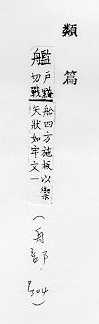 類篇
艦 戶黤切戰船四方施板以禦矢狀如牢文一
(舟部.
P304)